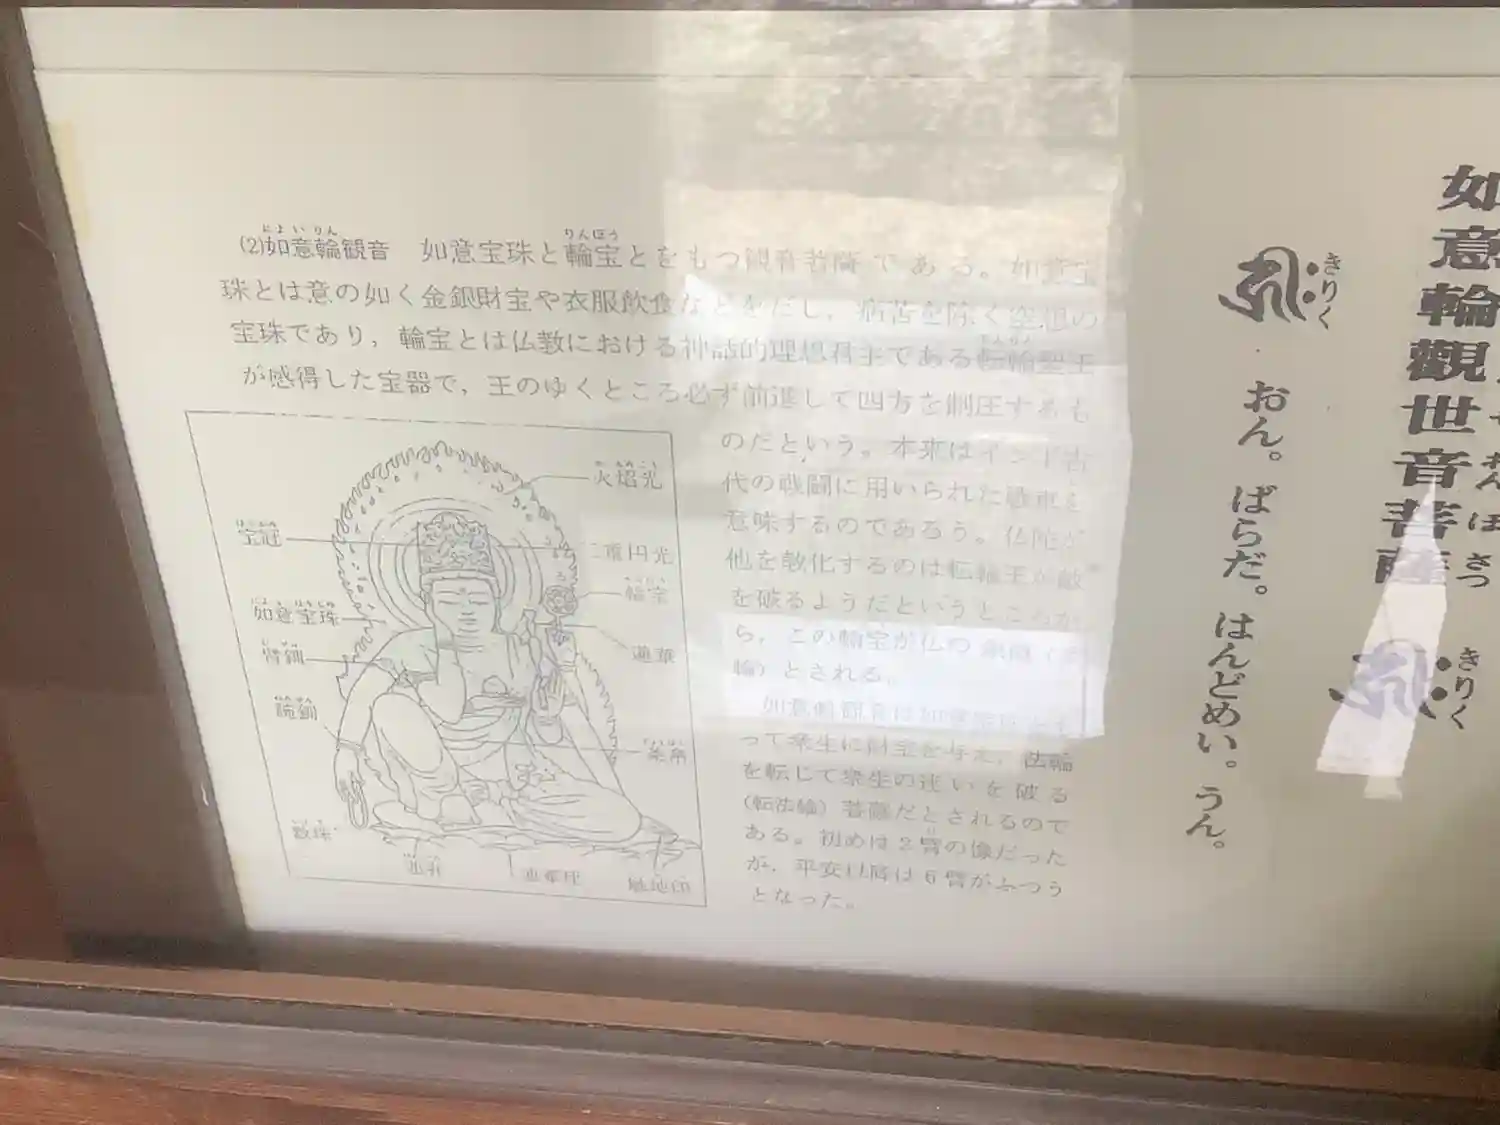 如意輪觀世音菩薩
んぼさつ
きりく
きりく
おん。ばらだ。はんどめい。うん。
(2)如意輪観音 如意宝珠と輪宝とをもつ観音菩薩である。如意宝
にょいりん
りんぽう
珠とは意の如く金銀財宝や衣服飲食などをだし，病苦を除く空想の
宝珠であり，輪宝とは仏教における神話的理想君主である転輪聖王
が感得した宝器で，王のゆくところ必ず前進して四方を制圧するも
のだという。本来はインド古
代の戦闘に用いられた
意味するのであろう。仏陀が
他を教化するのは転輪王が敵
を破るようだというところか
ら，この輪宝が仏の
輪）とされる。
如意輪観音は如意宝珠
って衆生に財宝を与え，法輪
を転じて衆生の迷いを破る
（転法輪）菩薩だとされるので
ある。初めは2臂の像だった
が，平安以後は6臂がふつう
となった。
火焔光
宝冠
二重円光
輪宝
如意宝珠
蓮華
臂釧
腕釧
条帛
数珠
蓮弁
蓮華座
触地印